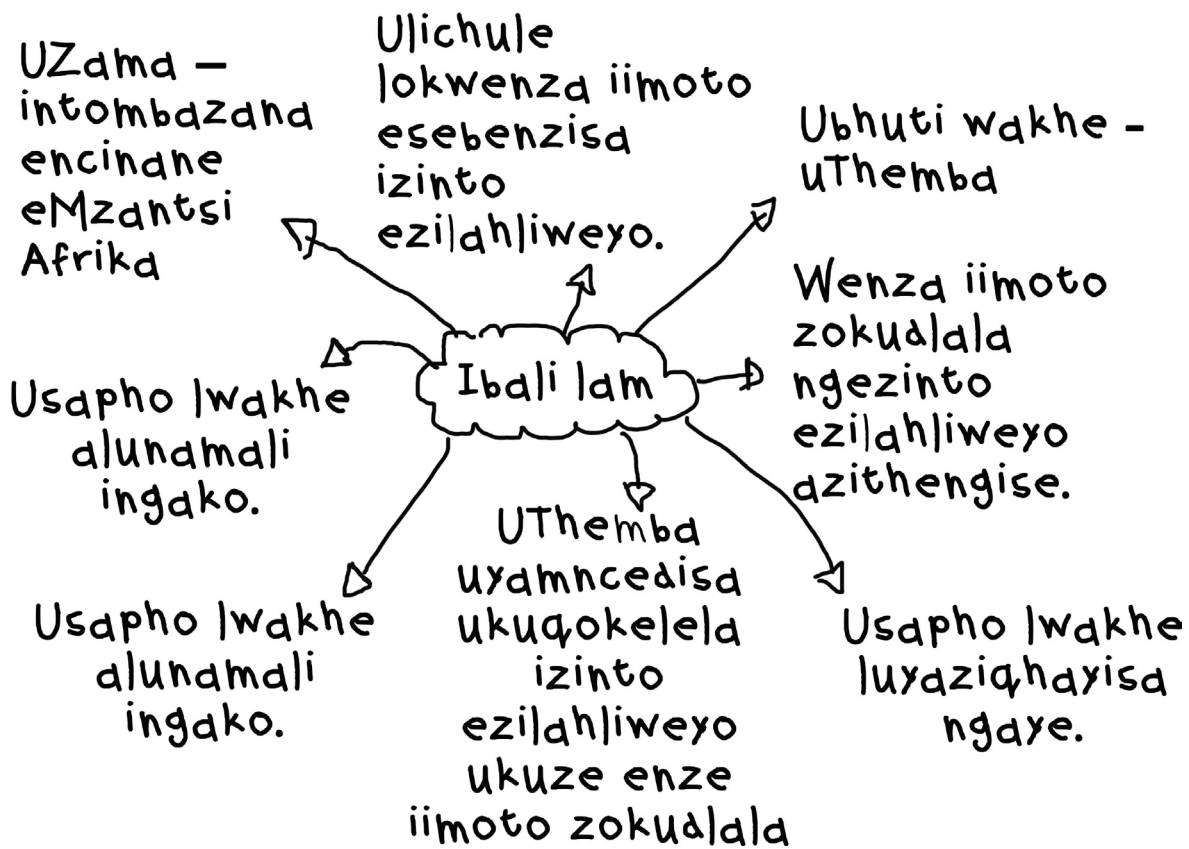 UZama –
intombazana
encinane
eMzantsi
Afrika
Ulichule
lokwenza iimoto
esebenzisa
izinto
ezilahliweyo.
Ubhuti wakhe –
uThemba
Wenza iimoto
zokudlala
ngezinto
ezilahliweyo
azithengise.
Ibali lam
Usapho lwakhe
alunamali
ingako.
Usapho lwakhe
alunamali
ingako.
UThemba
uyamncedisa
ukuqokelela
izinto
ezilahliweyo
ukuze enze
iimoto zokudlala
Usapho lwakhe
luyaziqhayisa
ngaye.